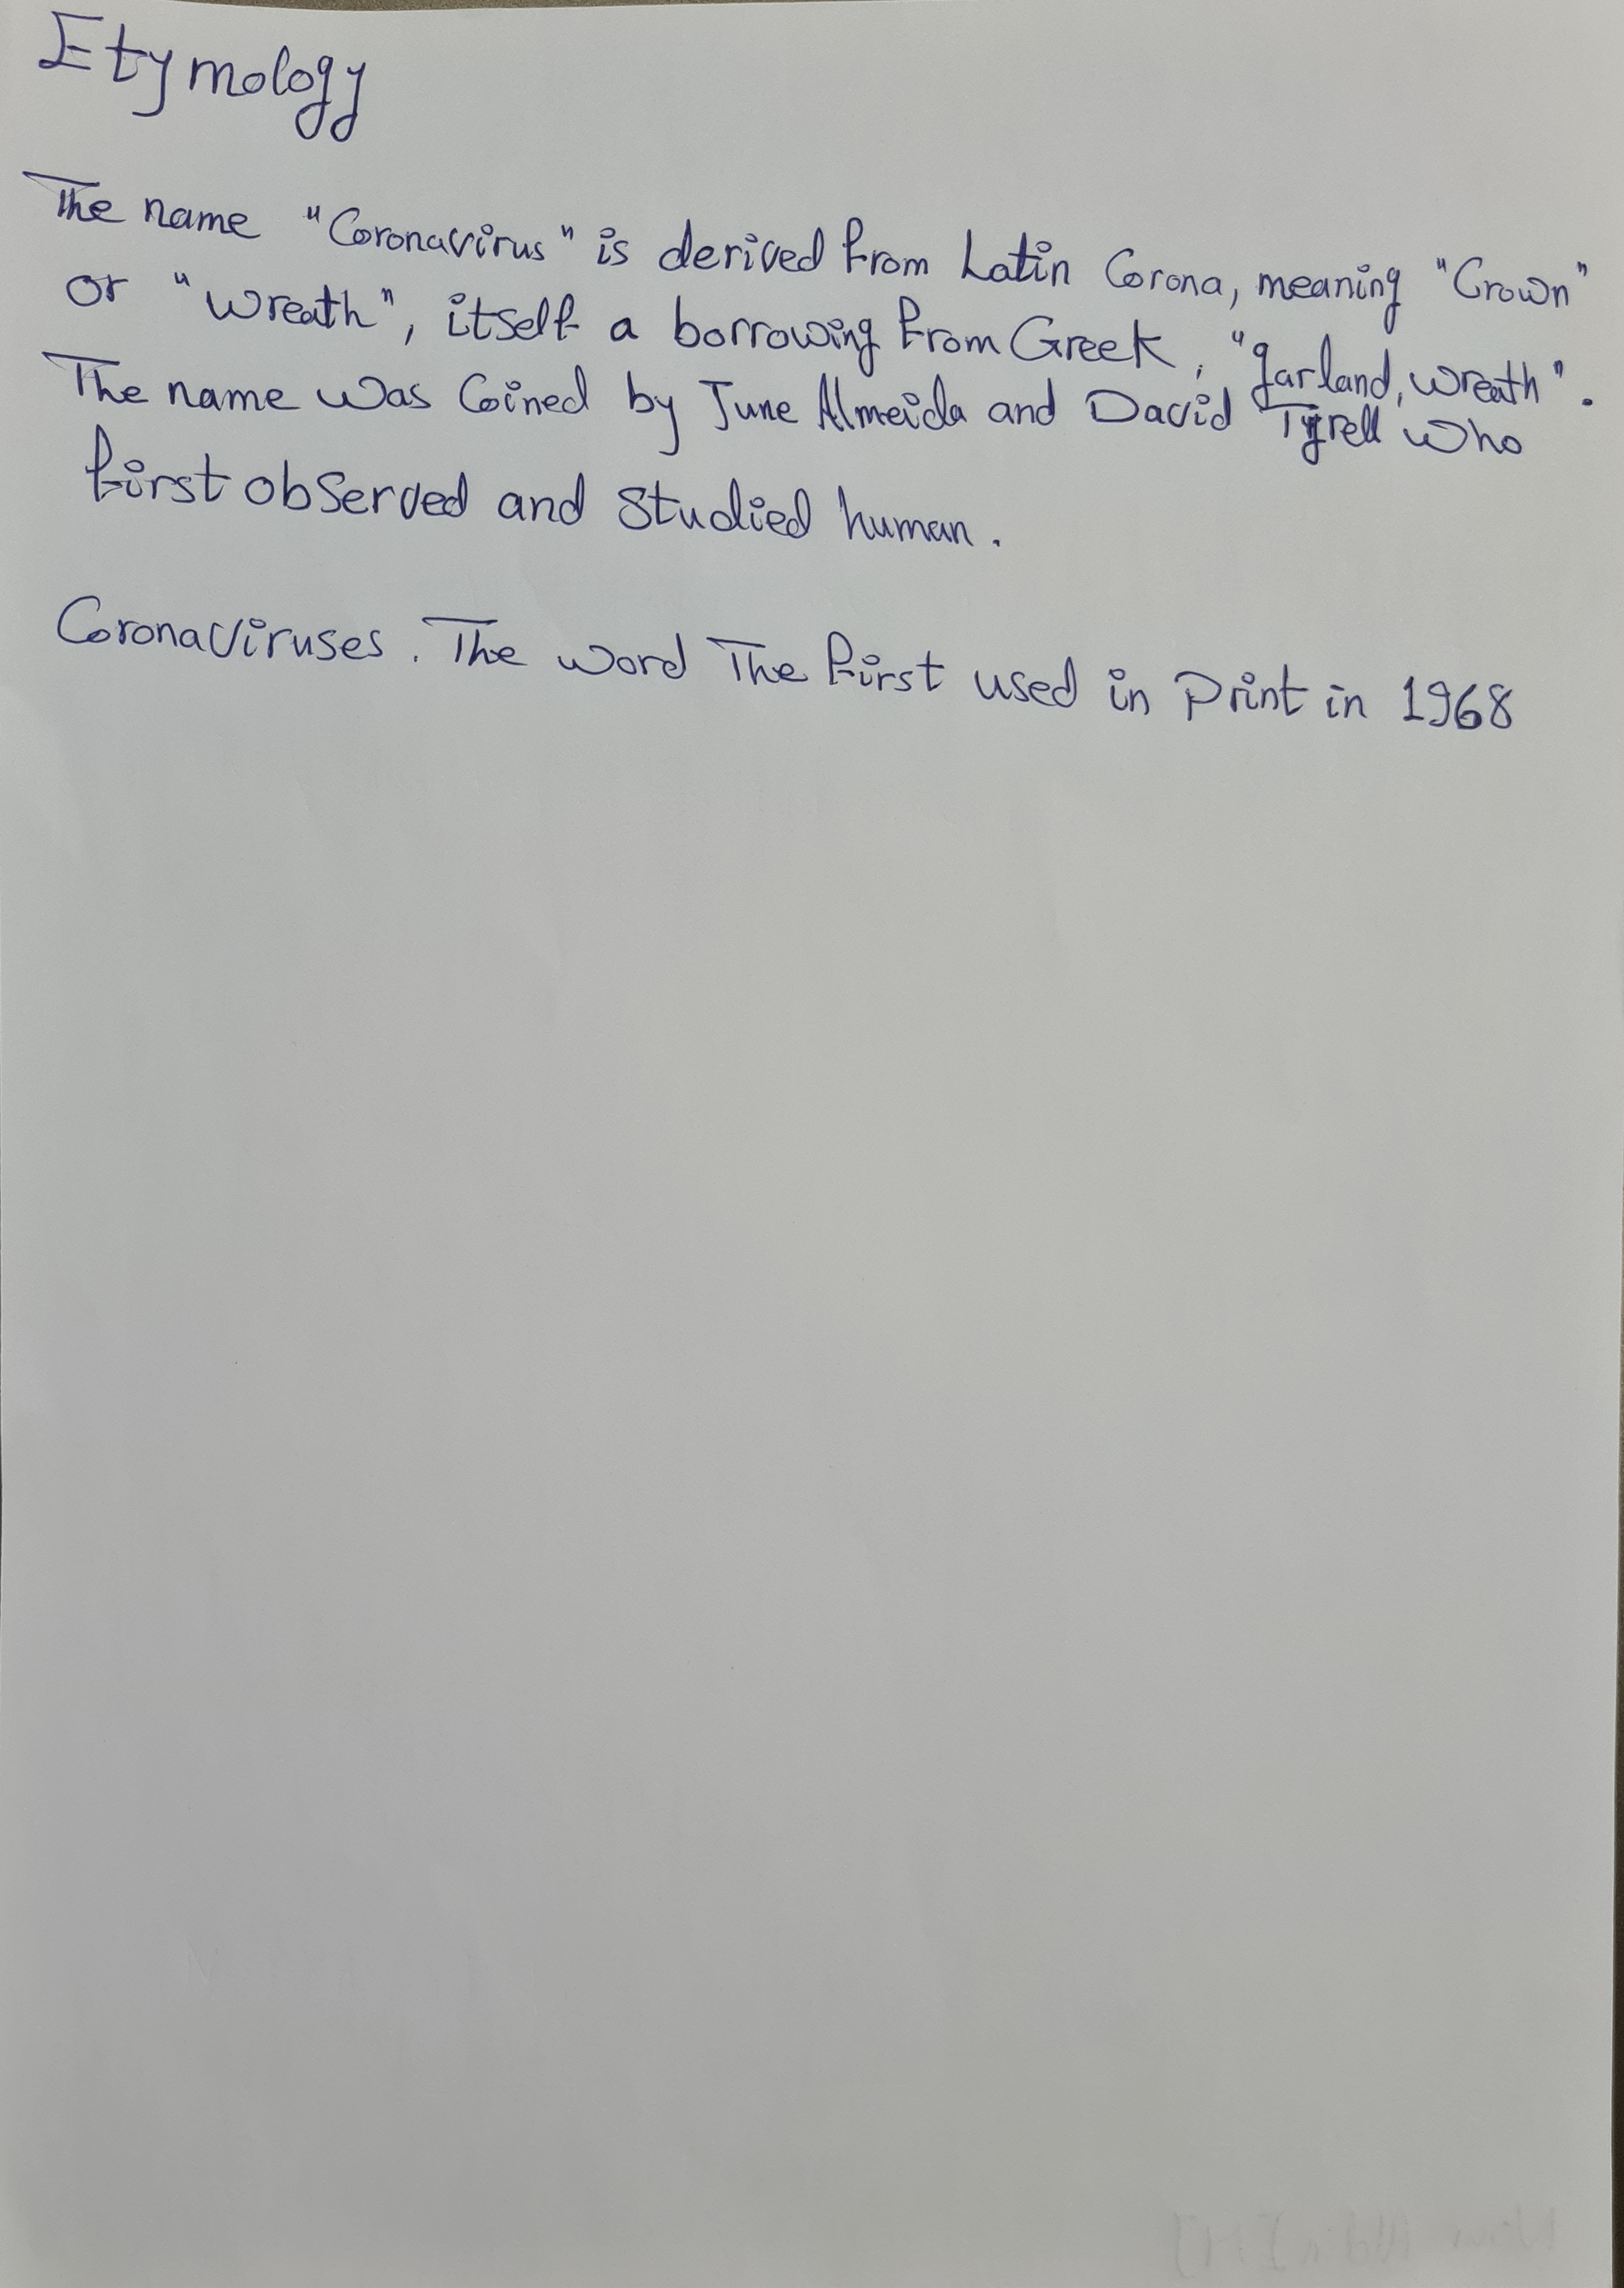 Etymology
The name "Coronavirus" is derived from Latin Corona, meaning "Crown"
or "wreath", itself a borrowing from Greek, "garland, wreath".
The name was Coined by June Almeida and David Tyrell who
first observed and Studied human.
Coronaviruses. The word The first used in Print in 1968